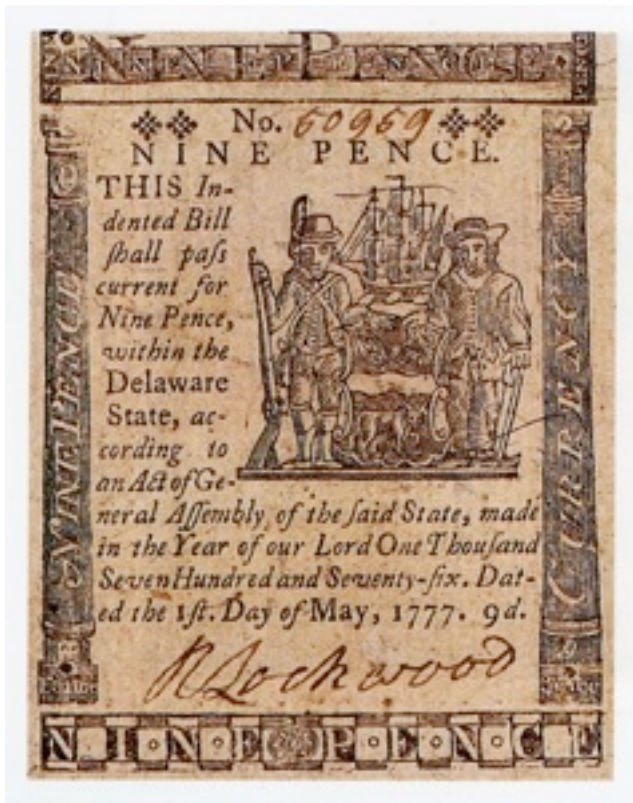 NINE PENCE
No. 50959
NINE PENCE.
THIS In-
dented Bill
ſhall paſs
current for
Nine Pence,
within the
Delaware
State, ac-
cording to
an Act of Ge-
neral Aſſembly of the ſaid State, made
in the Year of our Lord One Thouſand
Seven Hundred and Seventy-ſix. Dat-
ed the 1ſt. Day of May, 1777. 9d.
R Lockwood
NINE PENCE
CURRENCY
NINE PENCE